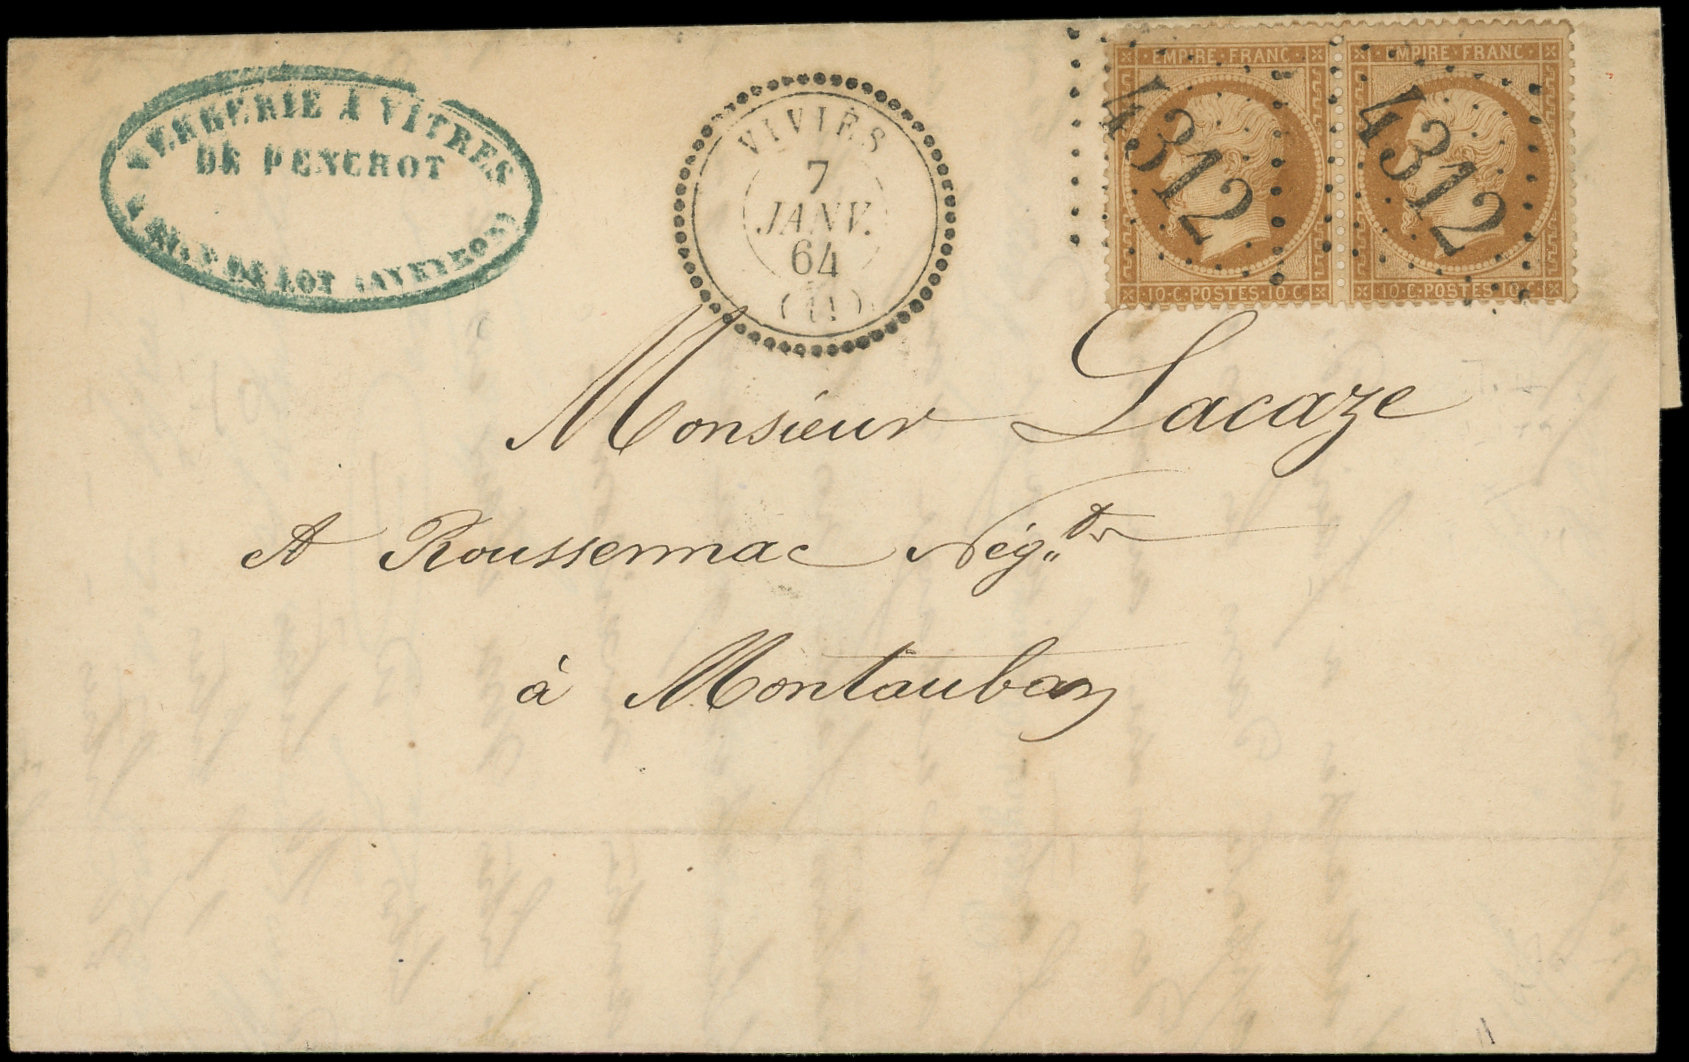 VERRERIE À VITRES
DE PENCHOT
DE LOT (AVEYRON)
VIVIÈS
7
JANV.
64
(11)
EMPIRE FRANC
10·C·POSTES·10·C
4312
EMPIRE FRANC
10·C·POSTES·10·C
4312
Monsieur Lacaze
A Roussennac Nég.t
à Montauban